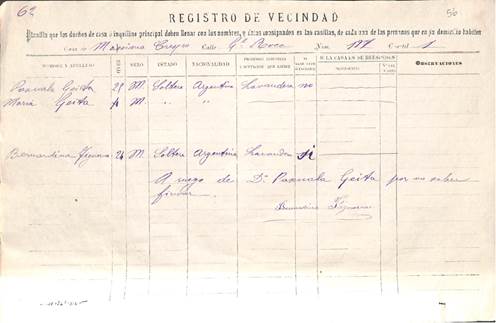 62
56
REGISTRO DE VECINDAD
Planilla que los dueños de casa ó inquilino principal deben llenar con los nombres, y datos consignados en las casillas, de cada una de las personas que en su domicilio habiten
Casa de Calle Gl. Roca Núm. Cuartel 1
NOMBRES Y APELLIDO EDAD SEXO ESTADO NACIONALIDAD PROFESION SI LA CASA ES DE HUESPEDES OBSERVACIONES
Pascuala Geita 25 M. Soltera Argentina Lavandera no
Maria Geita M " "
Bernardina Figueroa 26 M. Soltera Argentina Lavandera si
A ruego de Da. Pascuala Geita por no saber
firmar
Bernardina Figueroa